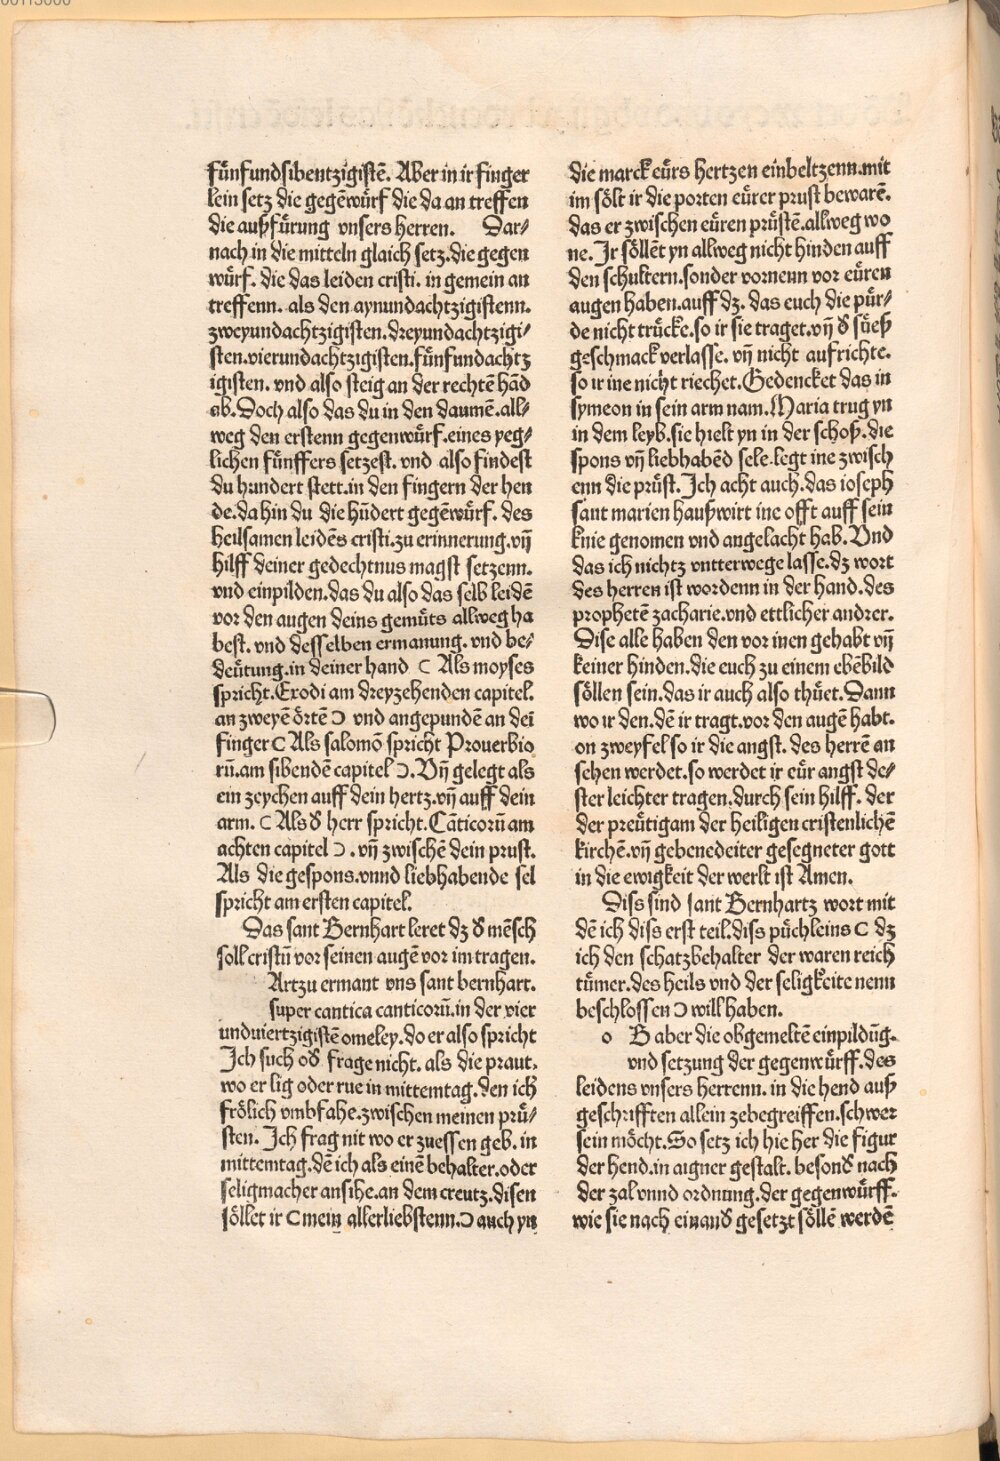 fünfundsibentzigistē. Aber in ir finger
lein setz die gegēwürf die da an treffen
die außfürung vnsers herren. Dar⸗
nach in die mitteln glaich setz.die gegen
würf. die das leiden cristi. in gemein an
treffenn. als den aynundachtzigistenn.
zweyundachtzigisten.dreyundachtzigi⸗
sten.vierundachtzigisten.fünfundachtz
igisten. vnd also steig an der rechtē hād
ab.Doch also das du in den daumē.all⸗
weg den erstenn gegenwürf.eines yeg⸗
lichen fünffers setzest. vnd also findest
du hundert stett.in den fingern der hen
de.da hin du die hūdert gegēwürf. des
heilsamen leidēs cristi.zu erinnerung.vn̄
hilff deiner gedechtnus magst setzenn.
vnd einpilden.das du also das selb leidē
vor den augen deins gemüts allweg ha
best. vnd desselben ermanung. vnd be⸗
deütung.in deiner hand ( Als moyses
spricht.Exodi am dreyzehenden capitel.
an zweyē örtē ) vnd angepundē an dei
finger ( Als salomō spricht Prouerbio
rū.am sibendē capitel ). Vn̄ gelegt als
ein zeychen auff dein hertz.vn̄ auff dein
arm. ( Als đ herr spricht. Cāticorū am
achten capitel ) . vn̄ zwischē dein prust.
Als die gespons.vnnd liebhabende sel
spricht am ersten capitel.
Das sant Bernhart leret dz đ mēsch
soll cristū vor seinen augē vor im tragen.
Artzu ermant vns sant bernhart.
super cantica canticorū.in der vier
undviertzigistē omeley.do er also spricht
Ich such ođ frage nicht. als die praut,
wo er lig oder rue in mittemtag.den ich
frölich vmbfahe.zwischen meinen prü⸗
sten. Ich frag nit wo er zuessen geb. in
mittemtag.dē ich als einē behalter.oder
seligmacher ansihe.an dem creutz.disen
söllet ir (mein allerliebstenn.) auch yn
die marck eürs hertzen einbeltzenn.mit
im sölt ir die porten eürer prust bewarē.
das er zwischen eüren prüstē.allweg wo
ne. Ir söllēt yn allweg nicht hinden auff
den schultern.sonder vornenn vor eüren
augen haben.auff dz. das euch die pür⸗
de nicht trücke.so ir sie traget.vn̄ đ süeß
geschmack verlasse. vn̄ nicht aufrichte.
so ir ine nicht riechet.Gedencket das in
symeon in sein arm nam.Maria trug yn
in dem leyb.sie hielt yn in der schoß.die
spons vn̄ liebhabēd sele.legt ine zwisch
enn die prüst. Ich acht auch.das ioseph
sant marien haußwirt ine offt auff sein
knie genomen vnd angelacht hab. Vnd
das ich nichtz vntterwege lasse.dz wort
des herren ist wordenn in der hand.des
prophetē zacharie.vnd ettlicher andrer.
Dise alle haben den vor inen gehabt vn̄
keiner hinden.die euch zu einem ebēbild
söllen sein.das ir auch also thüet.Dann
wo ir den.dē ir tragt.vor den augē habt.
on zweyfel so ir die angst. des herrē an
sehen werdet.so werdet ir eür angst de⸗
ster leichter tragen.durch sein hilff. der
der preütigam der heiligen cristenlichē
kirchē.vn̄ gebenedeiter gesegneter gott
in die ewigkeit der werlt ist Amen.
Diss sind sant Bernhartz wort mit
dē ich diss erst teil.diss püchleins ( dz
ich den schatzbehalter der waren reich
tümer.des heils vnd der seligkeite nenn
beschlossen ) will haben.
o B aber die obgemeltē einpildūg.
vnd setzung der gegenwürff.des
leidens vnsers herrenn. in die hend auß
geschrifften allein zebegreiffen.schwer
sein möcht.So setz ich hie her die figur
der hend.in aigner gestalt. besonđ nach
der zal vnnd ordnung.der gegenwürff.
wie sie nach einanđ gesetzt söllē werdē